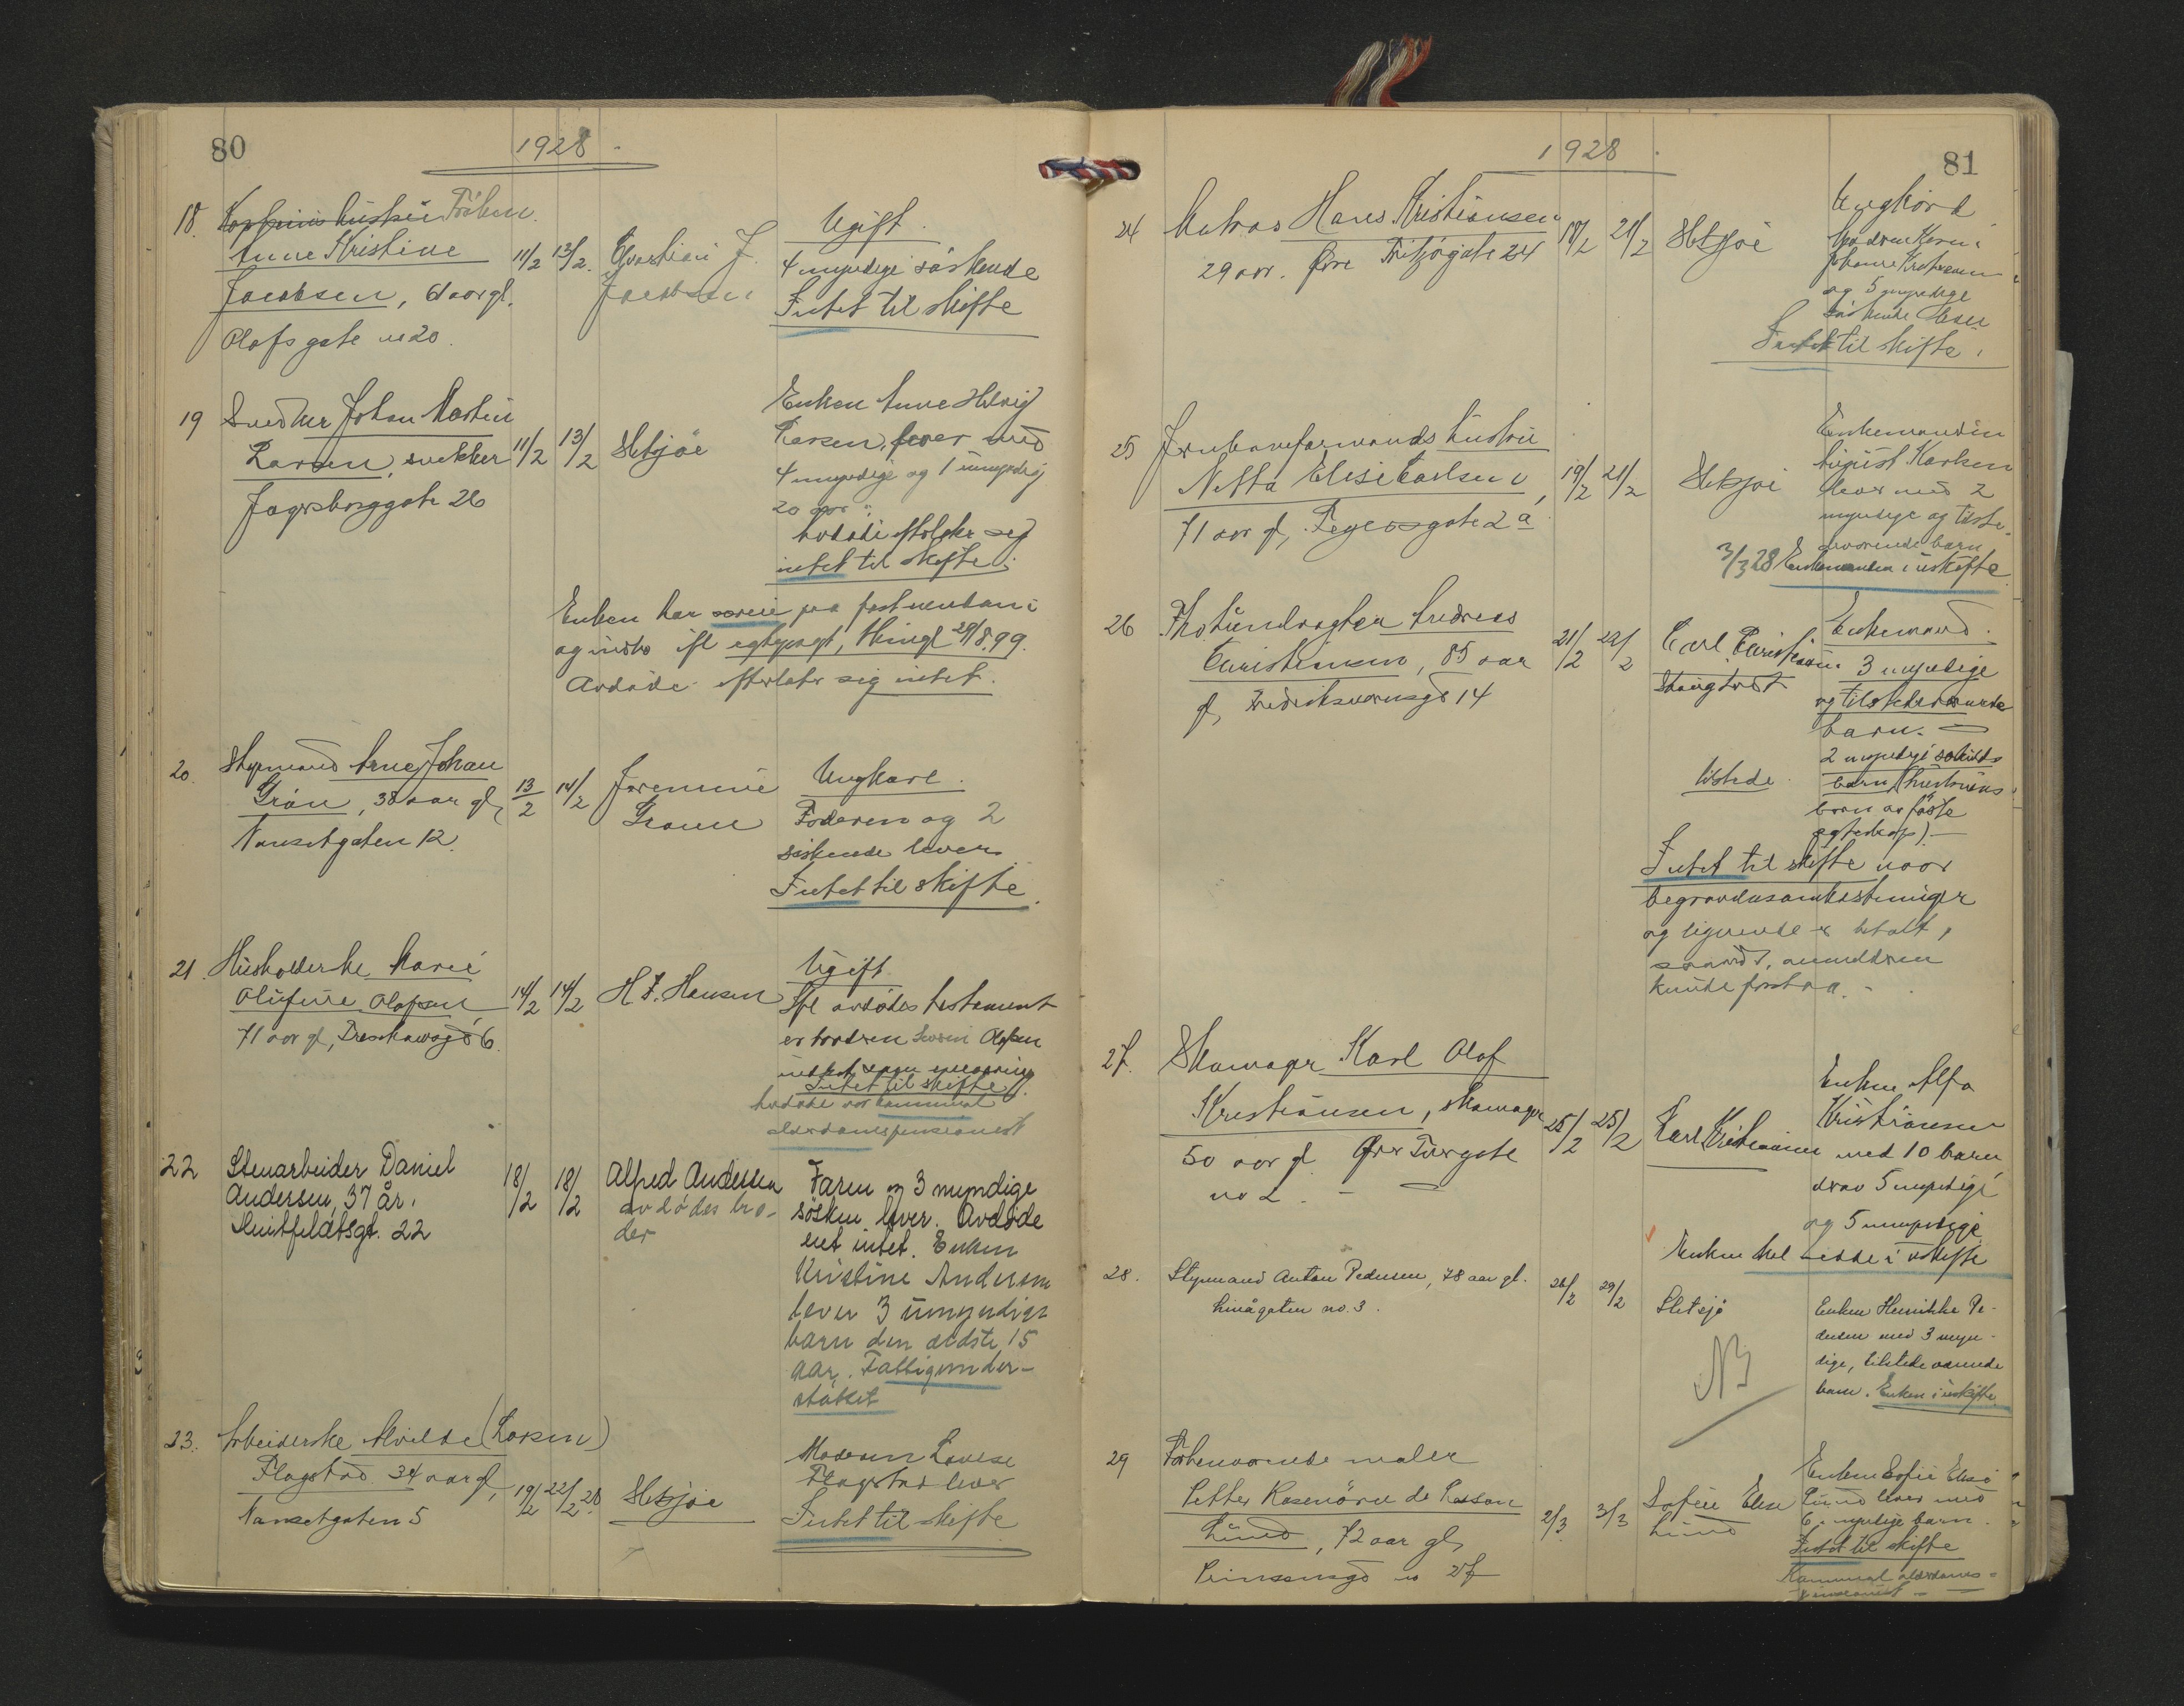 80
1928
18. Frøken
Anne Kristine
Jacobsen, 61 aar gl.
Olafsgate no 20.
11/2 13/2.
J.
Jacobsen
Ugift.
4 myndige søskende
Intet til skifte
19 Snedker Johan Martin
Larsen, snekker
Jegersborggate 26
11/2 13/2
Enken Anne Helvig
Larsen, lever med
4 myndige og 1 umyndig
20 aar
Avdøde efterlater seg
intet til skifte.
Enken har særeie paa fast eiendom i
og indbo ifl egtepagt, thingl 29/8.99.
Avdøde efterlater sig intet.
20. Styrmand Arne Johan
Grøn, 38 aar gl,
Nansetgaten 12.
13/2 14/2
Ungkarl.
Faderen og 2
søskende lever.
Intet til skifte.
21. Husholderske Marie
Olufine Olafsen
71 aar gl, 6.
14/2 14/2
H. F. Hansen
Ugift
Ifl avdødes testament
er broderen Olafsen
Intet til skifte.
Avdøde var kommunal
alderdomspensionist
22 Stenarbeider Daniel
Andersen, 37 år.
Huitfeldtsgt. 22
18/2 18/2
Alfred Andersen
avdødes bro-
der
Faren og 3 myndige
søsken lever. Avdøde
eiet intet. Enken
Kristine Andersen
lever 3 umyndige
barn den ældste 15
aar. Fattigunder-
støttet
23. Arbeiderske Alvilde (Larsen)
Flagstad 34 aar gl,
Nansetgaten 5
19/2 22/2 28
Moderen Lovise
Flagstad lever
Intet til skifte
81
1928
24 Matros Hans Kristiansen
29 aar. Øvre Fritzøgate 24
18/2 21/2
Ungkarl
Moderen
og 5 myndige
søskende lever
Intet til skifte.
25 Jernbaneformands hustru
Netta Elise Carlsen,
71 aar gl, Feyersgate 2a
19/2 21/2
Enkemanden
August Karlsen
lever med 2
myndige og tilste-
deværende barn
3/3 28 Enkemanden i uskifte.
26 Andreas
Christiansen, 85 aar
gl, Fredriksværnsgd 14
21/2 22/2
Carl Christiansen
Enkemand.
3 myndige
og tilstedeværende
barn.
2 myndige særkulds
barn (hustruens
barn av første
egteskap).
tilstede.
Intet til skifte naar
begravelsesomkostninger
og lignende er betalt,
saavidt anmelderen
kunde forstaa.
27. Skomager Karl Olaf
Kristiansen, skomager
50 aar gl Øvre Torvgate
no 2.
25/2 25/2
Karl Kristiansen
Enken Alfa
Kristiansen
med 10 barn
derav 5 myndige
og 5 umyndige
Enken hel sidde i uskifte
28. Styrmand Anton Pedersen, 78 aar gl.
Linågaten no. 3.
26/2 29/2
Enken Henrikke Pe-
dersen med 3 myn-
dige, tilstedeværende
barn. Enken i uskifte.
NB
29 Forhenværende maler
Petter Rosenörn de Lasson
Lund, 72 aar gl,
Prinsensgd no 27
2/3 3/3
Sofie Elise
Lund
Enken Sofie Elise
Lund lever med
6 myndige barn
Intet til skifte
Kommunal alderdoms-
pensionist